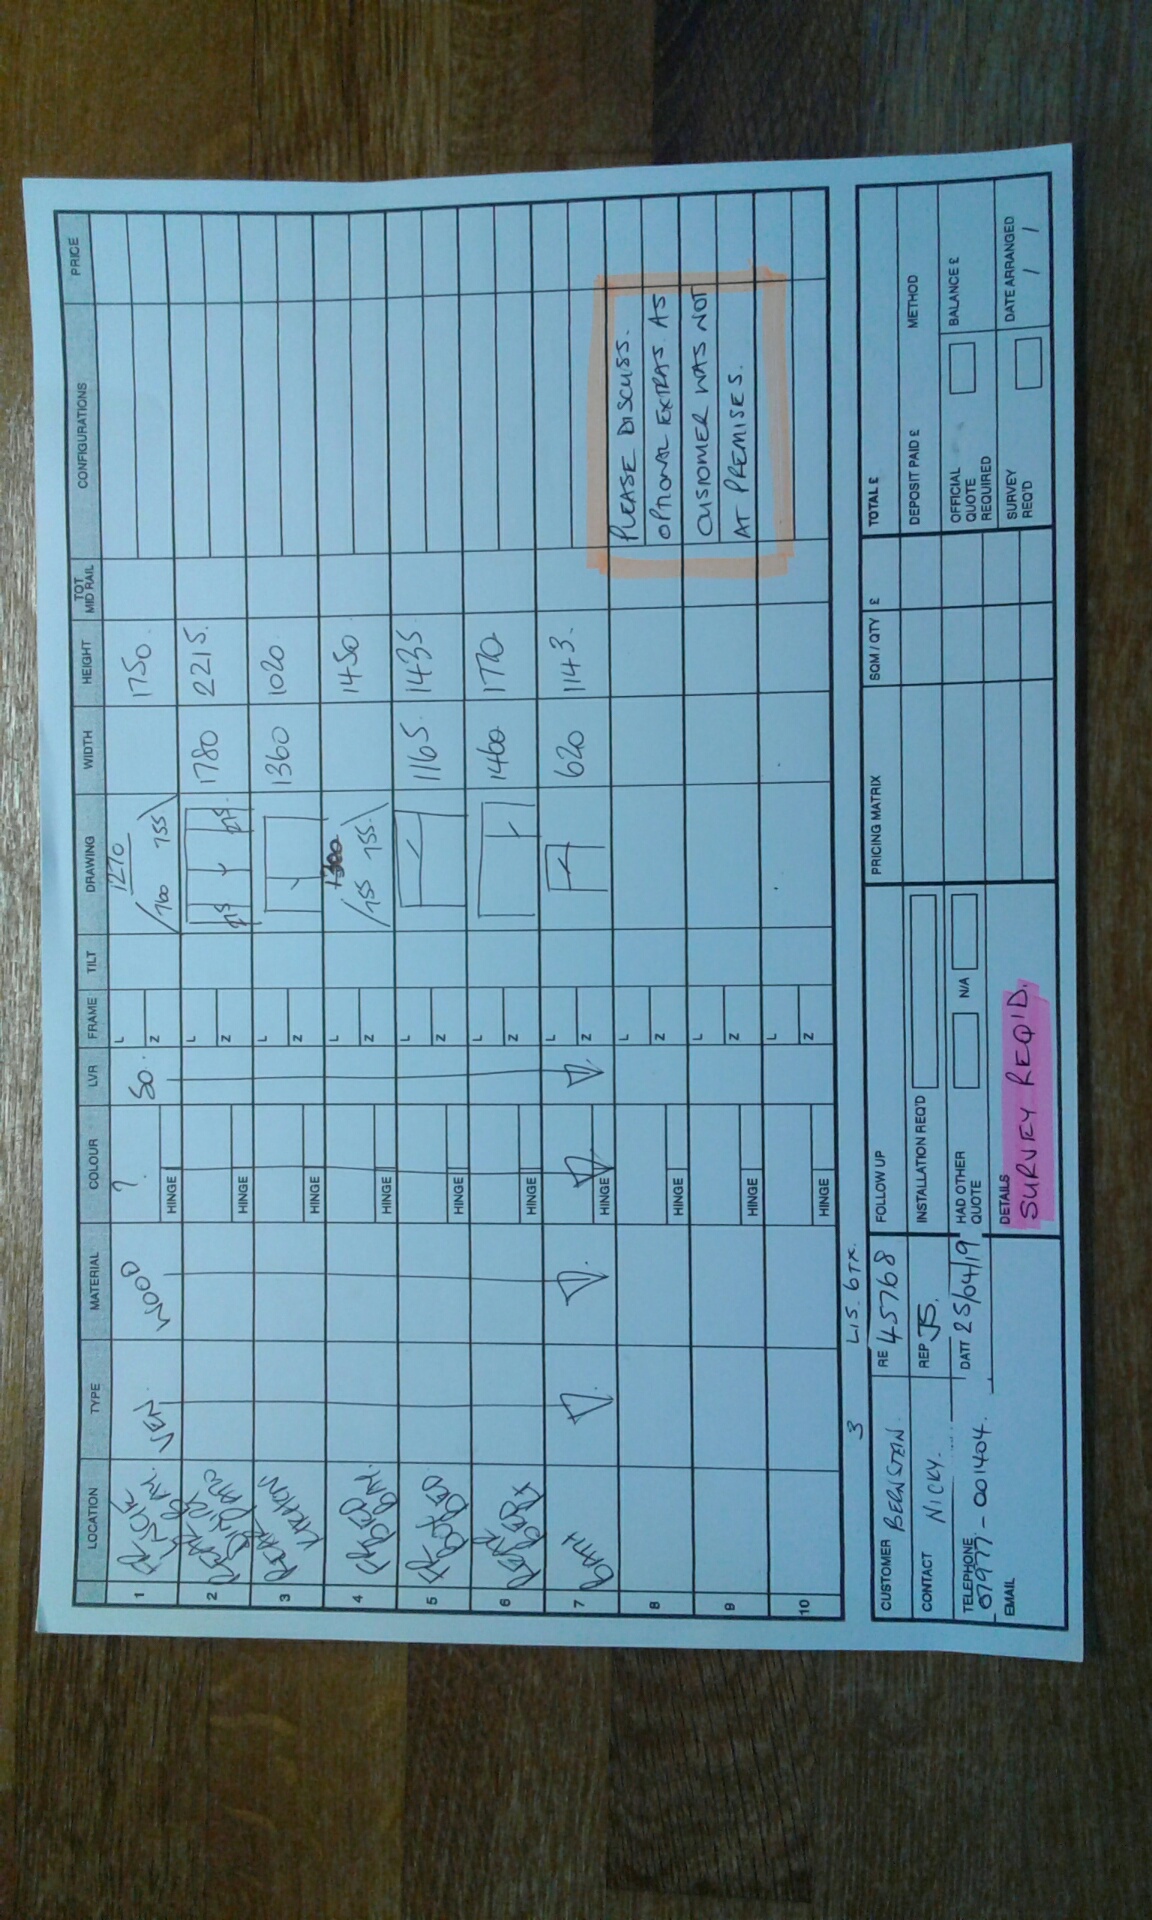 LOCATION TYPE MATERIAL COLOUR LVR FRAME TILT DRAWING WIDTH HEIGHT TOT MID RAIL CONFIGURATIONS PRICE
1 BAY. VEN. WOOD ? HINGE 50. L Z 1270 760 755 1750.
2 REAR HINGE L Z 215 215. 1780 2215.
3 REAR KITCHEN HINGE L Z 1360 1020
4 BED BAY. HINGE L Z 755 755. 1450
5 HINGE L Z 1165. 1435.
6 REAR HINGE L Z 1460 1770
7 BATH HINGE L Z 620 1143.
8 HINGE L Z
9 HINGE L Z
10 HINGE L Z
PLEASE DISCUSS.
OPTIONAL EXTRAS. AS
CUSTOMER WAS NOT
AT PREMISES.
3 L15. 6TX.
CUSTOMER BERNSTEIN.
RE 45768
CONTACT NICKY.
REP JS.
TELEPHONE
07977 - 001404.
DATE 25/04/19
EMAIL
FOLLOW UP
INSTALLATION REQ'D
HAD OTHER
QUOTE
N/A
DETAILS
SURVEY REQ'D.
PRICING MATRIX SQM / QTY £
TOTAL £
DEPOSIT PAID £ METHOD
OFFICIAL
QUOTE
REQUIRED
BALANCE £
SURVEY
REQ'D
DATE ARRANGED
/ /